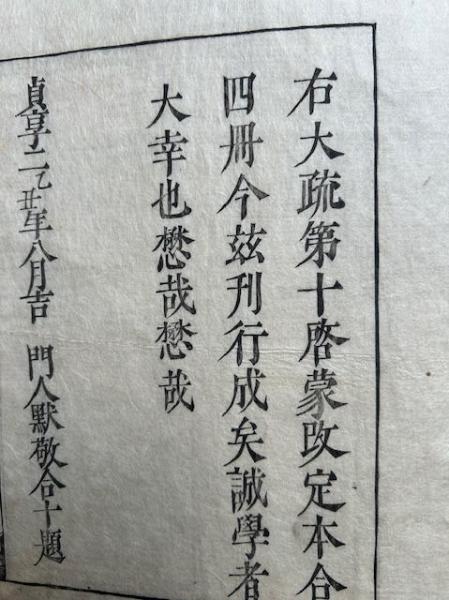 右大疏第十啓蒙改定本合
四冊今茲刊行成矣誠學者
大幸也懋哉懋哉
貞享二乙丑年八月吉 門人默敬合十題